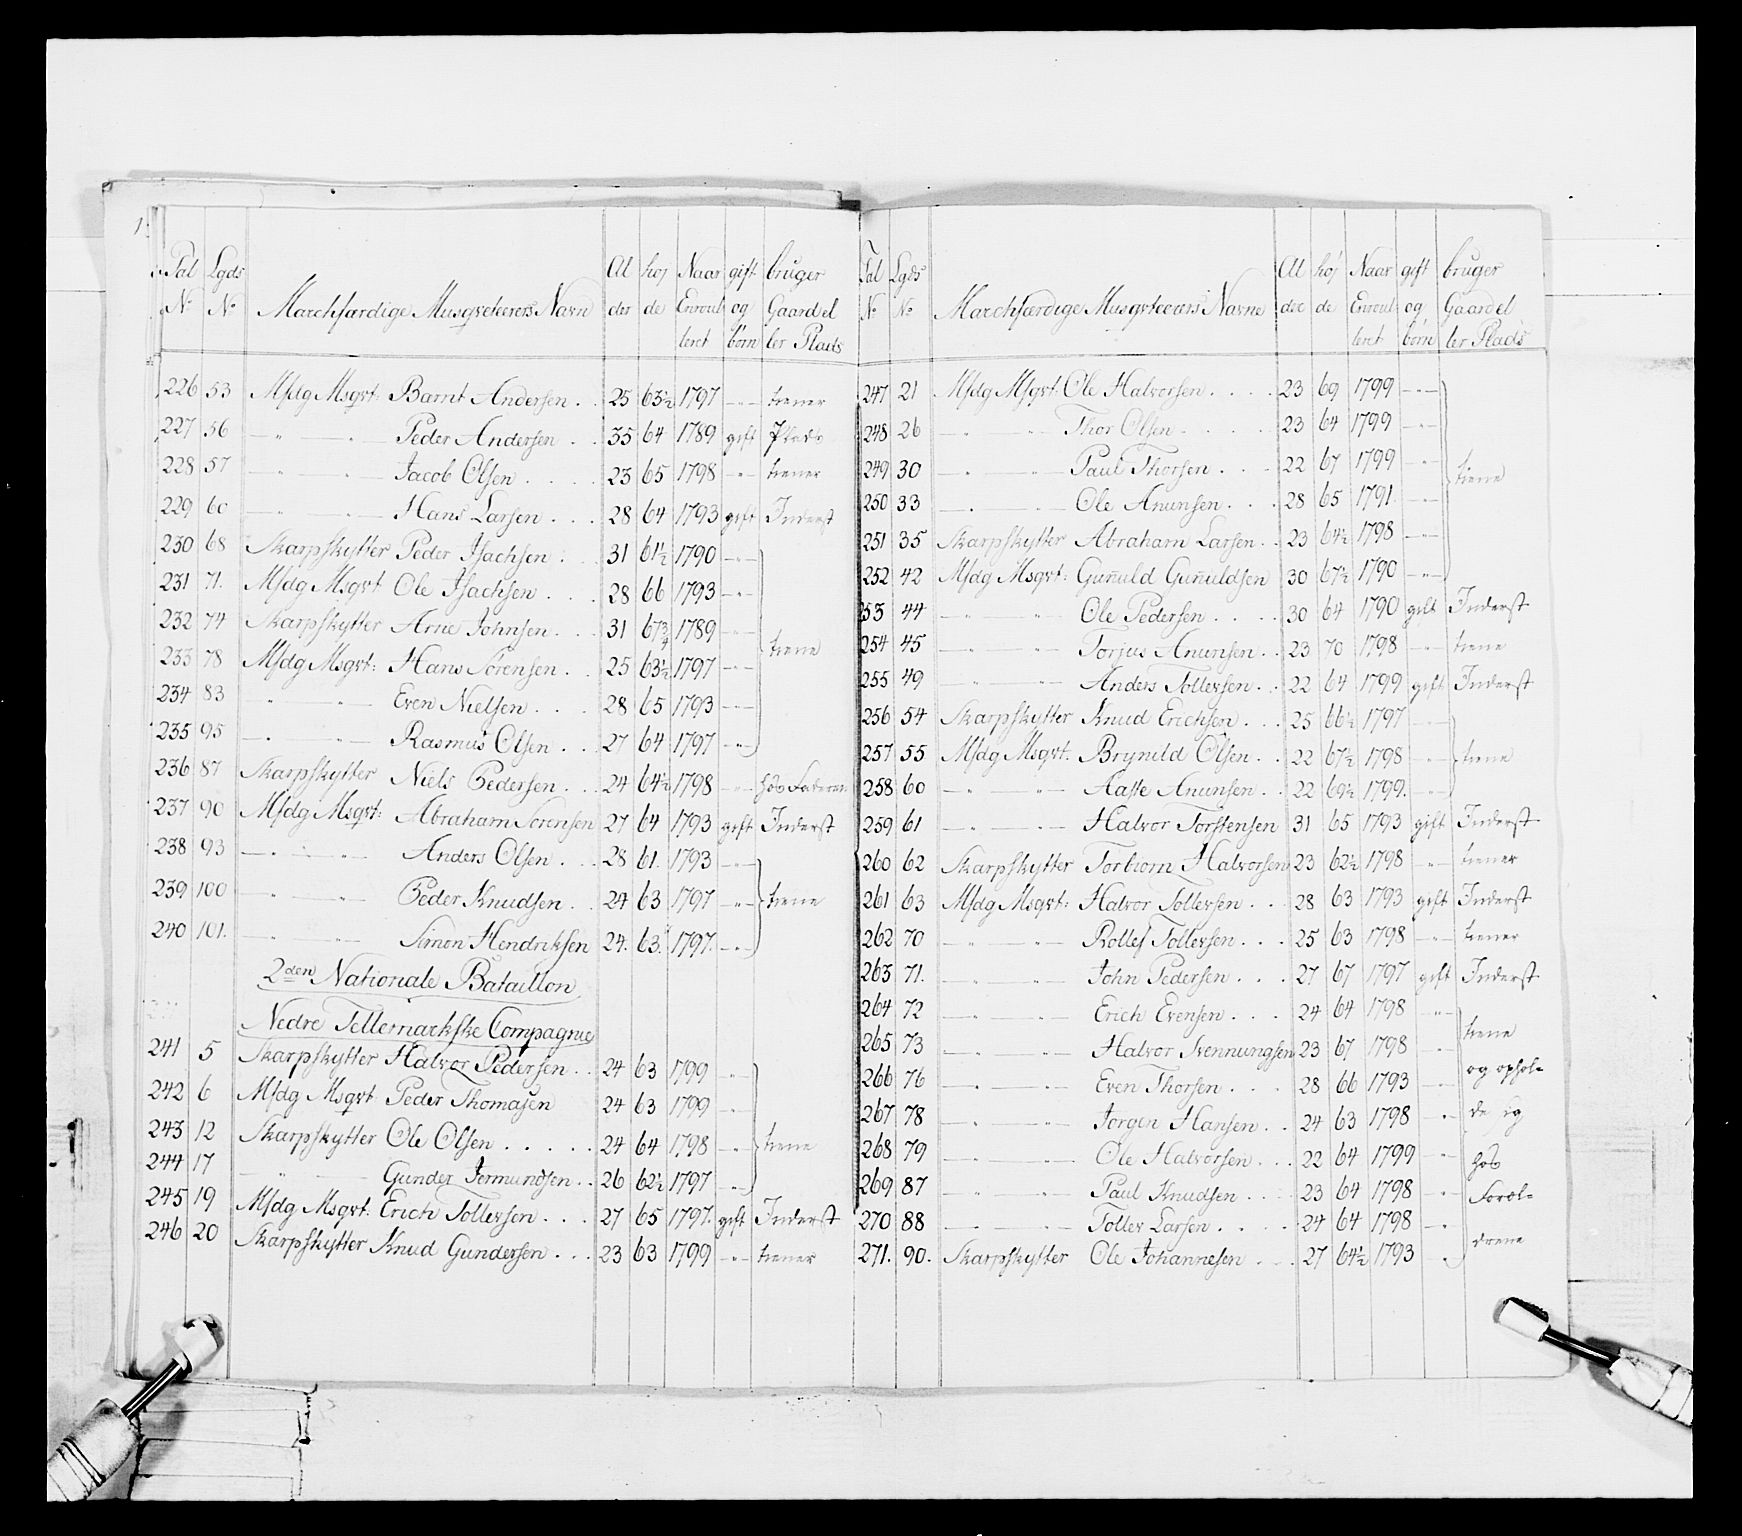 Tal Lgds Al høj Naar gift bruger
No No Marchfærdige Musqveteerers Navn der de Enroul og Gaard el
leret børn ler Plads
226 53 Msdg Msqvt: Barnt Andersen . . 25 63½ 1797 -"- tiener
227 56 — " — " — Peder Andersen . . 35 64 1789 gift Plads
228 57 — " — " — Jacob Olsen . . . . 23 65 1798 -"- tiener
229 60 — " — " — Hans Larsen . . . 28 64 1793 gift Inderst
230 68 Skarpskytter Peder Isachsen . . 31 61½ 1790 -"-
231 71. Msdg Msqvt Ole Isachsen . . . 28 66 1793 -"-
232 74 Skarpskytter Arne Johnsen . . . 31 67¾ 1789 -"- tiene
233 78 Msdg Msqvt: Hans Sörensen . . 25 63½ 1797 -"-
234 83 " — " — Even Nielsen . . . 28 65 1793 -"-
235 95 — " — " — Rasmus Olsen . . . 27 64 1797 -"-
236 87 Skarpskytter Niels Pedersen . . . 24 64½ 1798 -"- hos Faderen
237 90 Msdg Msqvt: Abraham Sörensen 27 64 1793 gift Inderst
238 93 — " — " — Anders Olsen . . . 28 61. 1793 -"-
239 100 " — " — Peder Knudsen . . 24 63 1797 -"- tiene
240 101. — " — " — Simon Hendriksen 24. 63. 1797. -"-
2den Nationale Bataillon
Nedre Tellemarkske Compagnie
241 5 Skarpskytter Halvor Pedersen . . 24 63 1799 -"-
242 6 Msdg Msqvt Peder Thomasen 24 63 1799 -"-
243 12 Skarpskytter Ole Olsen . . . . . 24 64 1798 -"- tiene
244 17 — " — Gunder Jermundsen . . 26 62½ 1797 -"-
245 19 Msdg Msqvt: Erich Tollersen . . . 27 65 1797. gift Inderst
246 20 Skarpskytter Knud Gundersen . . . 23 63 1799 -"- tiener
Tal Lgds Al høj Naar gift bruger
No No Marchfærdige Musqvteerers Navne der de Enroul og Gaard el
leret børn ler Plads
247 21 Msdg Msqvt: Ole Halvorsen . . . . 23 69 1799 -"-
248 26 — " — " — Thor Olsen . . . . . 23 64 1799 -"-
249 30 — " — " — Paul Thorsen . . . 22 67 1799 -"- tiene
250 33 — " — " — Ole Anunsen . . . 28 65 1791. -"-
251 35 Skarpskytter Abraham Larsen . . 23 64½ 1798 -"-
252 42 Msdg Msqvt: Gunuld Gunuldsen 30 67½ 1790 -"-
253 44 — " — " — Ole Pedersen . . . . 30 64 1790 gift Inderst
254 45 — " — " — Torjus Anunsen . . 23 70 1798 -"- tiene
255 49 — " — " — Anders Tollersen . . 22 64 1799 gift Inderst
256 54 Skarpskytter Knud Erichsen . . . 25 66½ 1797 -"-
257 55 Msdg Msqvt. Brynild Olsen . . 22 67½ 1798 -"- tiene
258 60 — " — " — Aasse Anunsen . . 22 69½ 1799. -"-
259 61 — " — " — Halvor Torstensen 31 65 1793 gift Inderst
260 62 Skarpskytter Torbiorn Halvorsen 23 62½ 1798 -"- tiener
261 63 Msdg Msqvt: Halvor Tollersen . . . 28 63 1793 gift Inderst
262 70 — " — " — Rollef Tollersen . . . 25 63 1798 -"- tiener
263 71. — " — " — John Pedersen . . . 27 67 1797 gift Inderst
264 72 — " — " — Erich Evensen . . . 24 64 1798 -"-
265 73 — " — " — Halvor Svennungsen 23 67 1798 -"- tiene
266 76 — " — " — Even Thorsen . . . 28 66 1793 -"- og ophol-
267 78 — " — " — Jørgen Hansen . . 24 63 1798 -"- de sig
268 79 — " — " — Ole Halvorsen . . . 22 64 1799 -"- hos
269 87 — " — " — Paul Knudsen . . . 23 64 1798 -"- Foræl-
270 88 — " — " — Toller Larsen . . . . 24 64 1798 -"-
271. 90. Skarpskytter Ole Johannesen . . . 27 64½ 1793 " drene